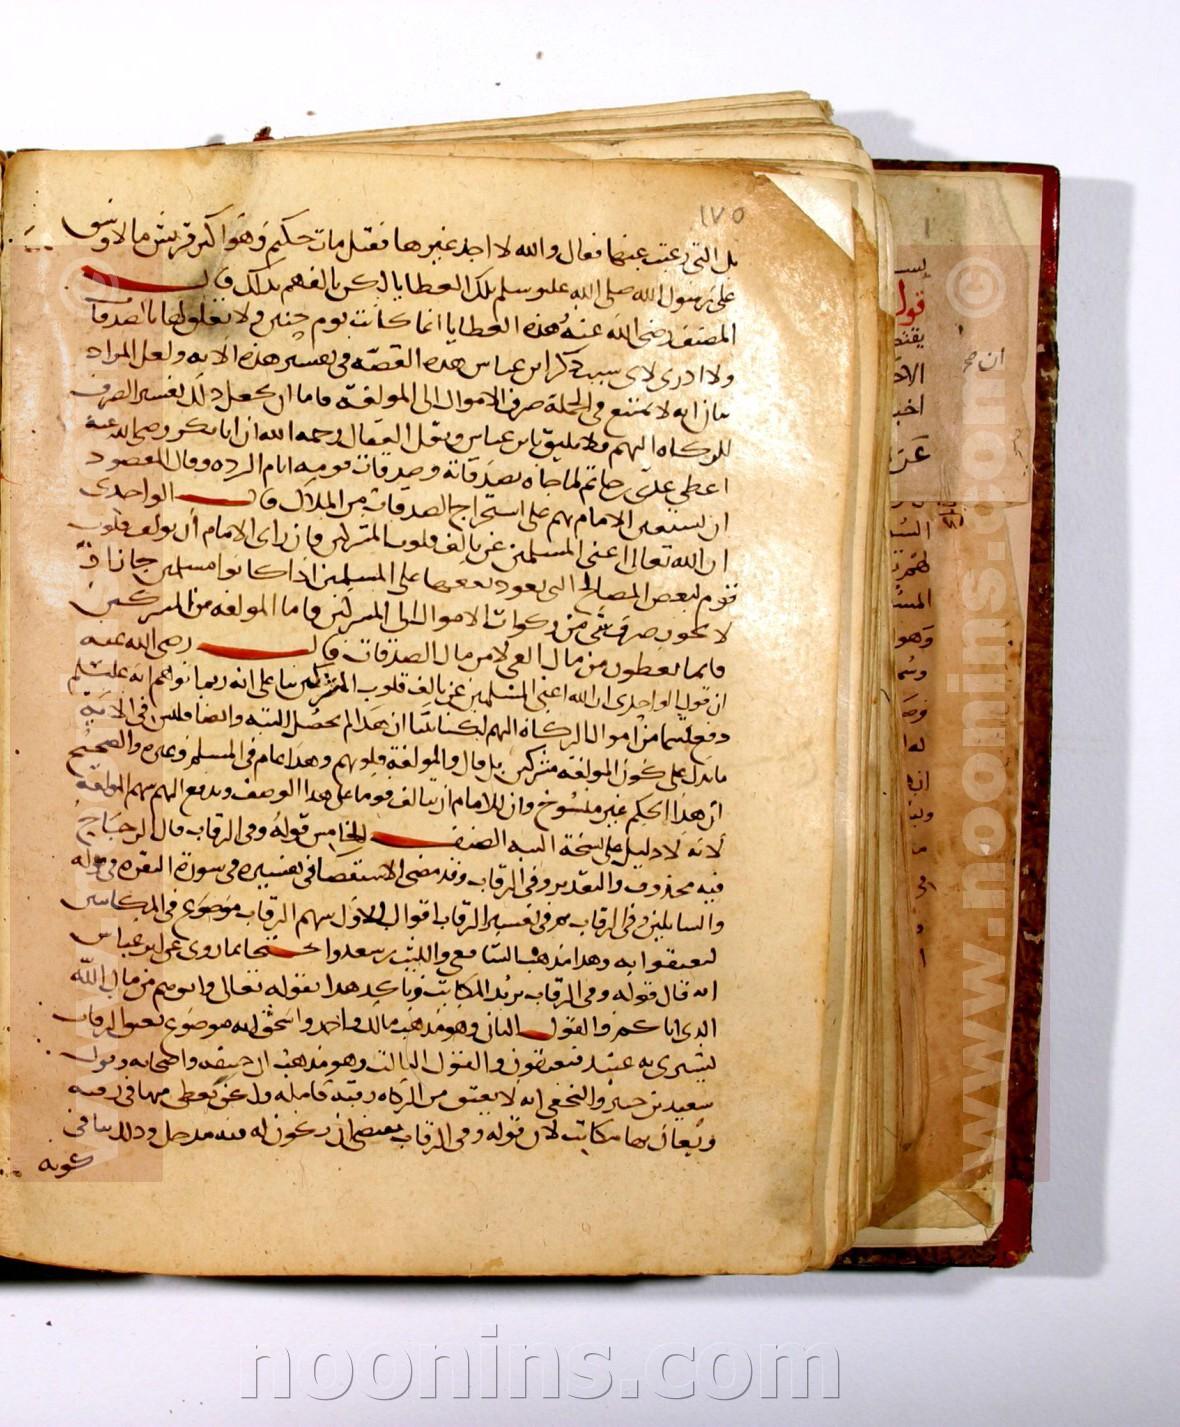 ١٧٥
بل التي رغبت عنها فقال والله لا اخذ غيرها فقيل مات حكيم وهو اكثر قريش مالا وشق
على رسول الله صلى الله عليه وسلم تلك العطايا لكن تالفهم بذلك قال
المصنف رضي الله عنه هذه العطايا انما كانت يوم حنين ولا تعلق لها بالصدقات
ولا ادري لاي سبب ذكر ابن عباس هذه القصة في تفسير هذه الاية ولعل المراد
بيان انه لا يمتنع في الجملة صرف الاموال الى المولفة فاما ان يجعل ذلك تفسير الصرف
الزكاة اليهم فلا يليق بابن عباس ونقل القفال رحمه الله ان ابا بكر رضي الله عنه
اعطى عدي بن حاتم لما جاه بصدقاته وصدقات قومه ايام الردة وقال المقصود
ان يستعين الامام بهم على استخراج الصدقات من الملاك قال الواحدي
ان الله تعالى اغنى المسلمين عن تالف قلوب المشركين فان راى الامام ان يولف قلوب
قوم لبعض المصالح التي يعود نفعها على المسلمين اذا كانوا مسلمين جاز اذ
لا يجوز صرف شي من زكوات الاموال الى المشركين فاما المولفة من المشركين
فانما يعطون من مال الفي لا من مال الصدقات قال رضي الله عنه
ان قول الواحدي ان الله اغنى المسلمين عن تالف قلوب المشركين بنا على انه ربما توهم انه عليه السلم
دفع قسما من اموال الزكاة اليهم لكنا بينا ان هذا لم يحصل البتة وايضا فليس في الاية
ما يدل على كون المولفة مشركين بل قال والمولفة قلوبهم وهذا عام في المسلم وغيره والصحيح
ان هذا الحكم غير منسوخ وان للامام ان يتالف قوما على هذا الوصف ويدفع اليهم سهم المولفة
لانه لا دليل على نسخه البتة الصنف الخامس قوله وفي الرقاب قال الزجاج
فيه محذوف والتقدير وفي فك الرقاب وقد مضى الاستقصا في تفسيره في سورة البقرة في قوله
والسايلين وفي الرقاب ثم في تفسير الرقاب اقوال الاول سهم الرقاب موضوع في المكاتبين
ليعتقوا به وهذا مذهب الشافعي والليث بن سعد واحتجا بما روي عن ابن عباس
انه قال قوله وفي الرقاب يريد المكاتب وتاكد هذا بقوله تعالى واتوهم من مال الله
الذي اتاكم والقول الثاني وهو مذهب مالك واحمد واسحق انه موضوع لعتق الرقاب
يشترى به عبيد فيعتقون والقول الثالث وهو مذهب ابي حنيفة واصحابه وقول
سعيد بن جبير والنخعي انه لا يعتق من الزكاة رقبة كاملة ولكن يعطى منها في رقبة
ويعان بها مكاتب لان قوله وفي الرقاب يقتضي ان يكون له فيه مدخل وذلك ينافي
كونه
ان صح
قول
www.noonins.com
noonins.com